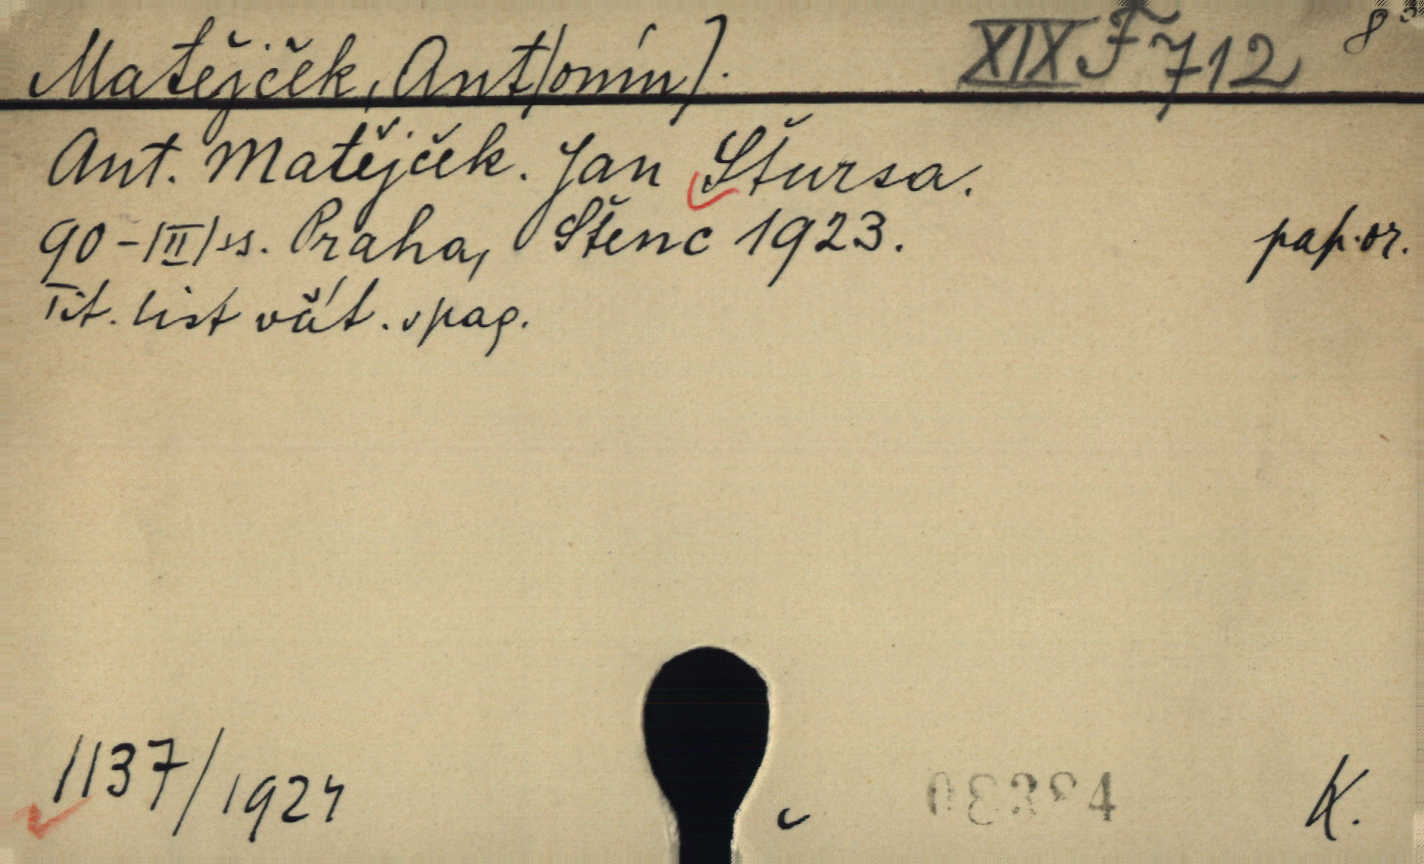 Matějček, Ant/onín/. XIX F 712 8°
Ant. Matějček. Jan Štursa.
90-/II/ss. Praha, Štenc 1923. pap. or.
Tit. list
1137/1924 K.